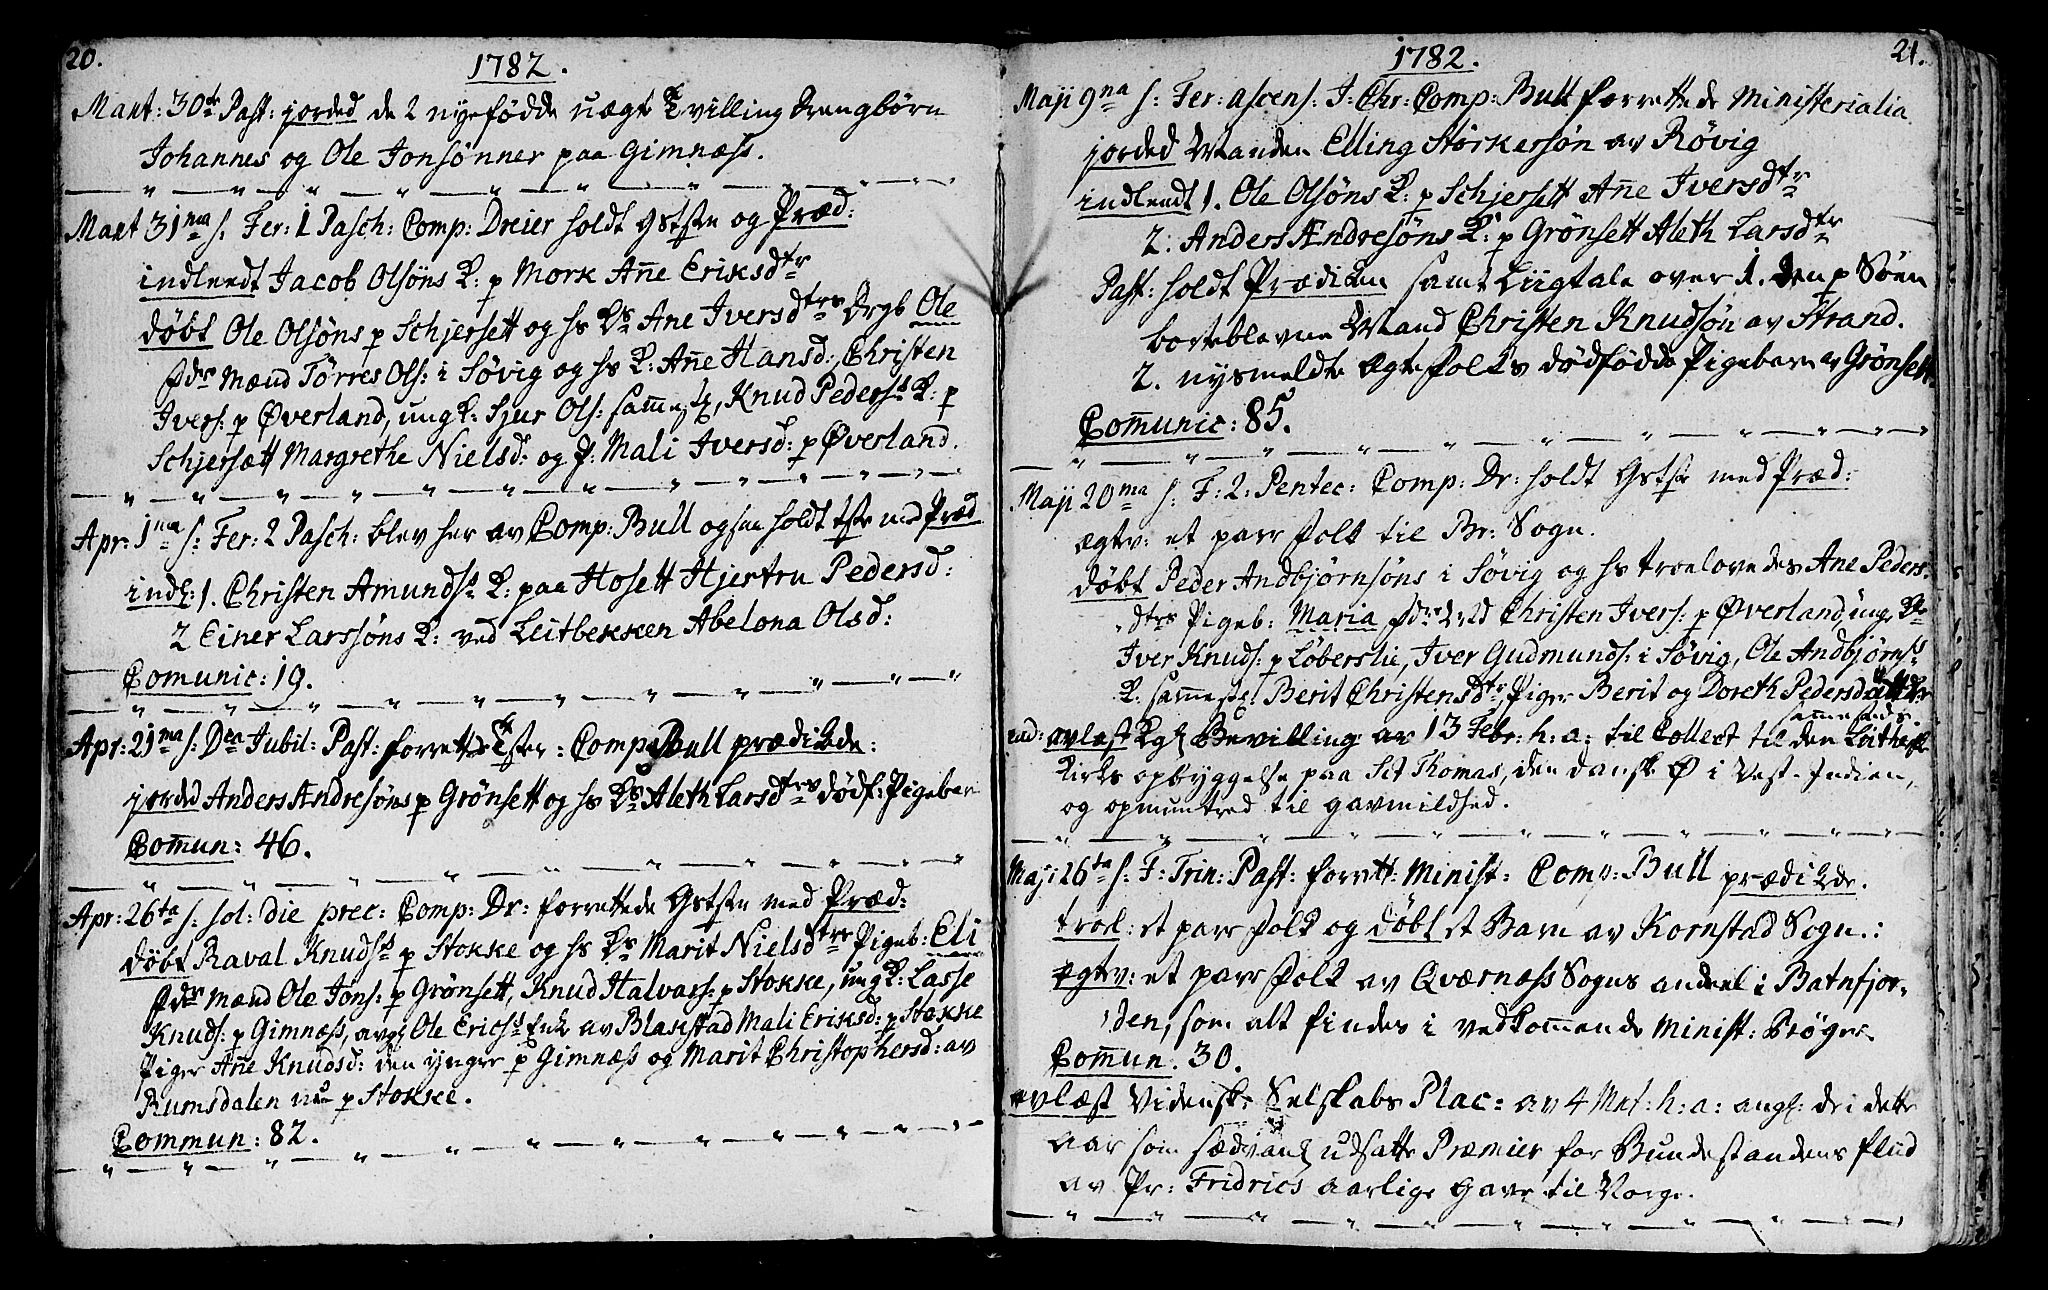 20.
1782.
Mart: 30te Past: jorded de 2 nyefødde uægte Tvilling Drengbørn
Johannes og Ole Jonsønner paa Gimnæss.
Mart 31ma s: Fer: 1 Pasch: Comp: Dreier holdt Gstste og Præd:
indleedt Jacob Olsöns K: p Mork Añe Eriksdtr
döbt Ole Olsöns p Schjersett og hs Ks Ane Iversdtrs Drgb Ole
fdr Mænd Törres Ols: i Sövig og hs K: Añe Hansd: Christen
Ivers: p Øverland, ungK: Sjur Ols: sam̃estz, Knud Peders: K: p
Schjersætt Margrethe Nielsd: og P: Mali Iversd: p Øverland.
Apr: 1ma s: Fer: 2 Pasch: blev her av Comp: Bull ogsaa holdt tste med Præd
indl: 1. Christen Amunds: K: paa Hosett Hjertru Pedersd:
2 Einer Larssöns K: ved Leitbekken Abelona Olsd:
Com̃unic: 19.
Apr: 21ma s: Dca Jubil: Past: forrettede tster: Comp: Bull prædikde:
jorded Anders Andresöns p Grönsett og hs Ks Aleth Larsdtrs dödf: Pigebarn
Com̃un: 46.
Apr: 26ta s: sol: die prec: Comp: Dr: forrettede Gstste med Præd:
döbt Raval Knuds: p Stokke og hs Ks Marit Nielsdtrs Pigeb: Eli
fdr Mænd Ole Jons: p Grönsett, Knud Halvars: p Stokke, ungK: Lasse
Knuds: p Gimnæss, avgl Ole Erics: Enke av Blakstad Mali Eriksd: p Stokke
Piger Añe Knudsd: den yngre p Gimnæss og Marit Christophersd: av
Rumsdalen nu p Stokke.
Commun: 82.
1782.
21.
Maji 9na s: Fer: ascens: J: Chr: Comp: Bull forrettede Ministerialia
jorded Manden Elling Störkersön av Rövig
indleedt 1. Ole Olsöns K: p Schjersett Añe Iversdtr
2. Anders Andresöns K: p Grönsett Aleth Larsdtr
Past: holdt Prædiken samt Liigtale over 1. den p Söen
borteblevne Mand Christen Knudsön av Strand.
2. nysmeldte Ægtefolks dödfödde Pigebarn av Grönsett.
Com̃unic: 85.
Maji 20ma s: F: 2: Pentec: Comp: Dr: holdt Gstste med Præd:
ægtv: et parr folk til Br: Sogn.
döbt Peder Andbjörnsöns i Sövig og hs troelovedes Ane Peders-
dtrs Pigeb: Maria Christen Ivers: p Øverland, ung K:
Iver Knuds: p Löberslie, Iver Gudmunds: i Sövig, Ole Andbjörns:
K: sam̃estz: Berit Christensdtr, Piger Berit og Doreth Pedersdöttre
sammesteds.
avlæst Kgl Bevilling av 13 Febr: h: a: til Collect til den Lutherske
Kirks opbyggelse paa Sct Thomas, den danske Ø i Vest-Indien,
og opmuntred til gavmildhed.
Maji 26ta s: F: Trin: Past: forrett: Minist: Comp: Bull prædikde.
troel: et parr folk og döbt et Barn av Kornstad Sogn.:
ægtv: et parr folk av Qværnæss Sogns andeel i Batnfjor-
den, som alt findes i vedkom̃ende Minist: Bøger.
Com̃un: 30.
avlæst Vidensk: Selskabs Plac: av 4 Mrt: h: a: angl: de i dette
aar som sædvanl udsatte Præmier for Bondestandens flid
av Pr: Fridrics aarlige gave til Norge.